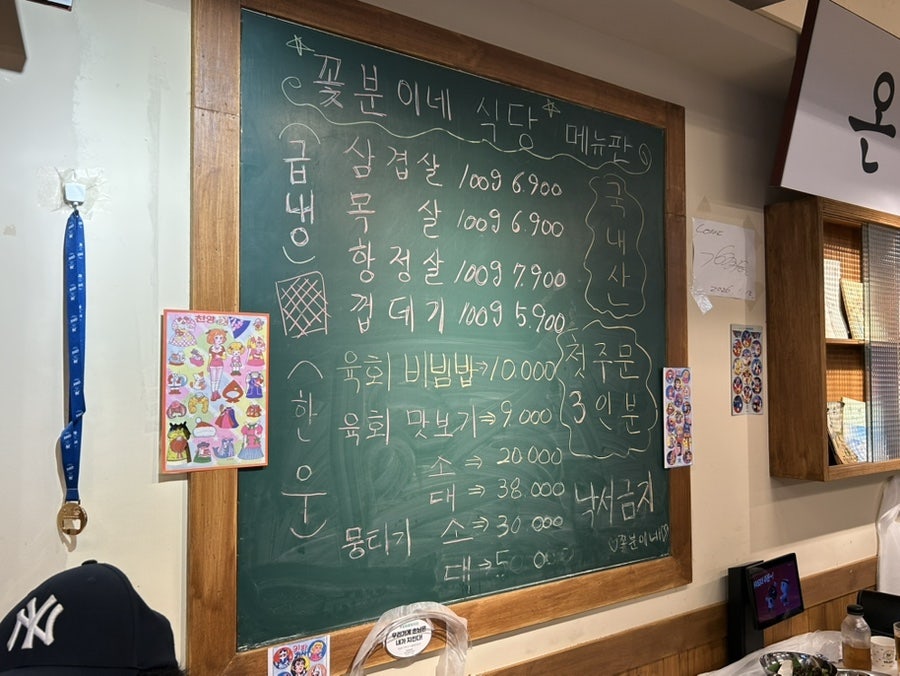 꽃분이네 식당 메뉴판
급냉
삼겹살 100g 6.900
목살 100g 6.900
항정살 100g 7.900
껍데기 100g 5.900
국내산
첫주문
3인분
한우
육회 비빔밥⇒10.000
육회 맛보기⇒9.000
소⇒20000
대⇒38.000
뭉티기 소⇒30 000
대⇒
낙서금지
꽃분이네
온
NY
우리가게 손님은
내가 지킨다!